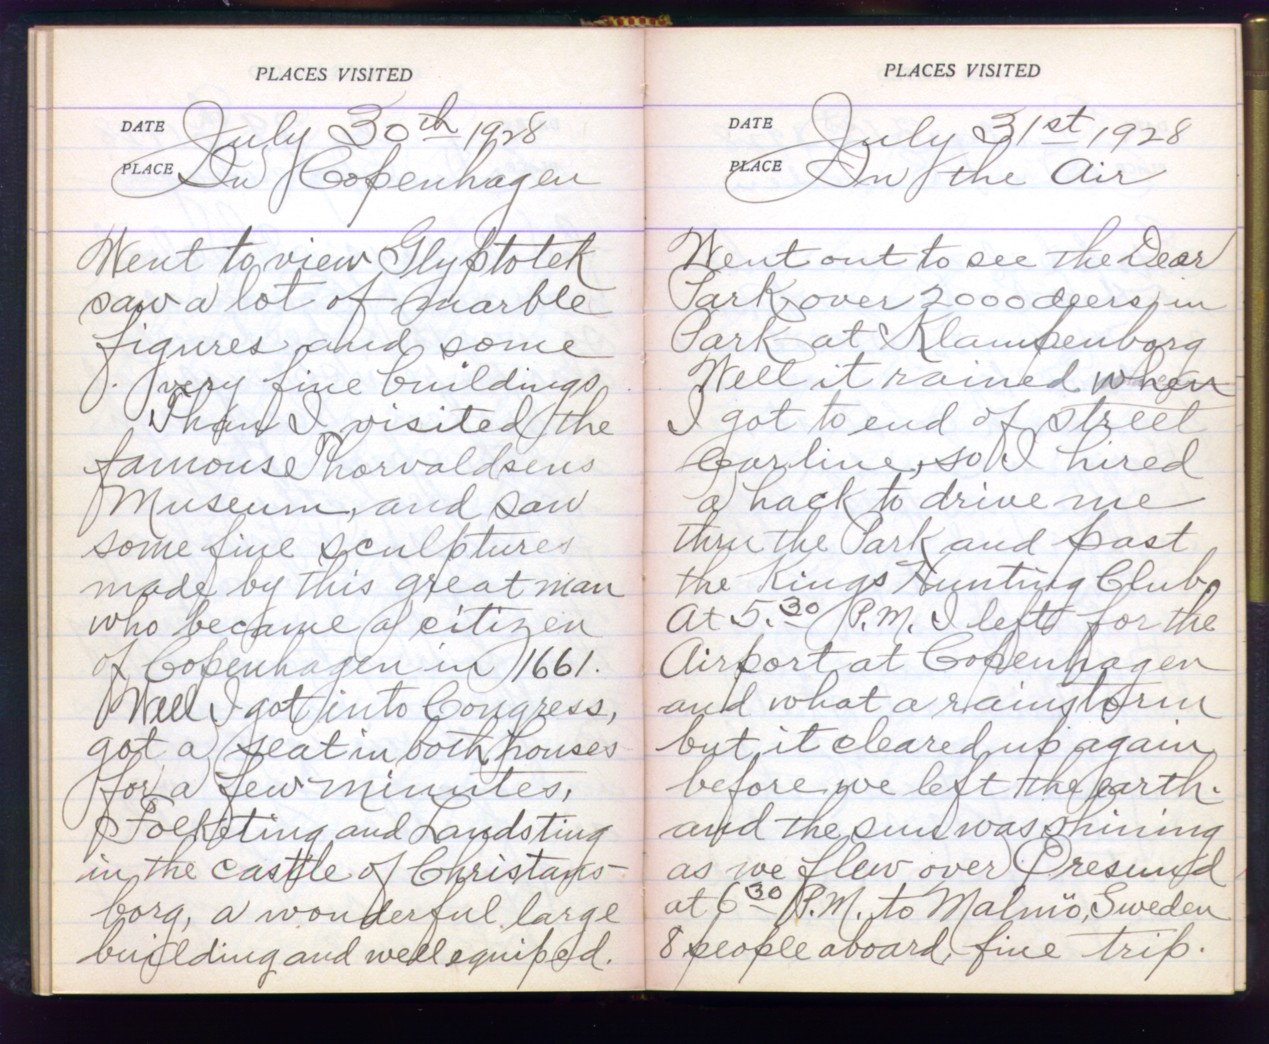 PLACES VISITED
DATE July 30th 1928
PLACE In Copenhagen
Went to view Glyptotek
saw a lot of marble
figures and some
very fine buildings
Than I visited the
famouse Thorvaldsens
Museum, and saw
some fine sculptures
made by this great man
who became a citizen
of Copenhagen in 1661.
Well I got into Congress,
got a seat in both houses
for a few minutes,
Folketing and Landsting
in the castle of Christans-
borg, a wonderful large
building and well equiped.
PLACES VISITED
DATE July 31st 1928
PLACE In the Air
Went out to see the Dear
Park over 2000 deers in
Park at Klampenborg
Well it rained when
I got to end of street
carline, so I hired
a hack to drive me
thru the Park and past
the Kings Hunting Club.
At 5.30 P.M. I left for the
Airport at Copenhagen
and what a rainstorm
but it cleared up again
before we left the earth.
and the sun was shining
as we flew over Øresund
at 6 30 P.M. to Malmö, Sweden
8 people aboard, fine trip.